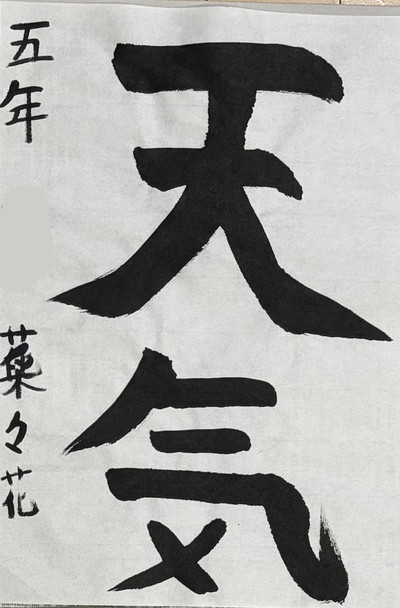 天気
五年 菜々花